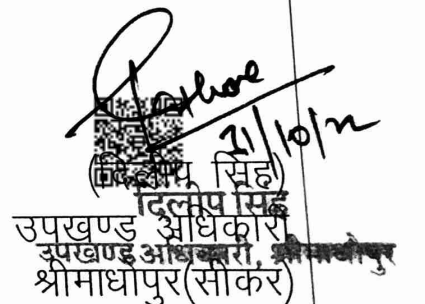 Rathore
21/10/22
(दिलीप सिंह)
दिलीप सिंह
उपखण्ड अधिकारी
उपखण्ड अधिकारी, श्रीमाधोपुर
श्रीमाधोपुर(सीकर)